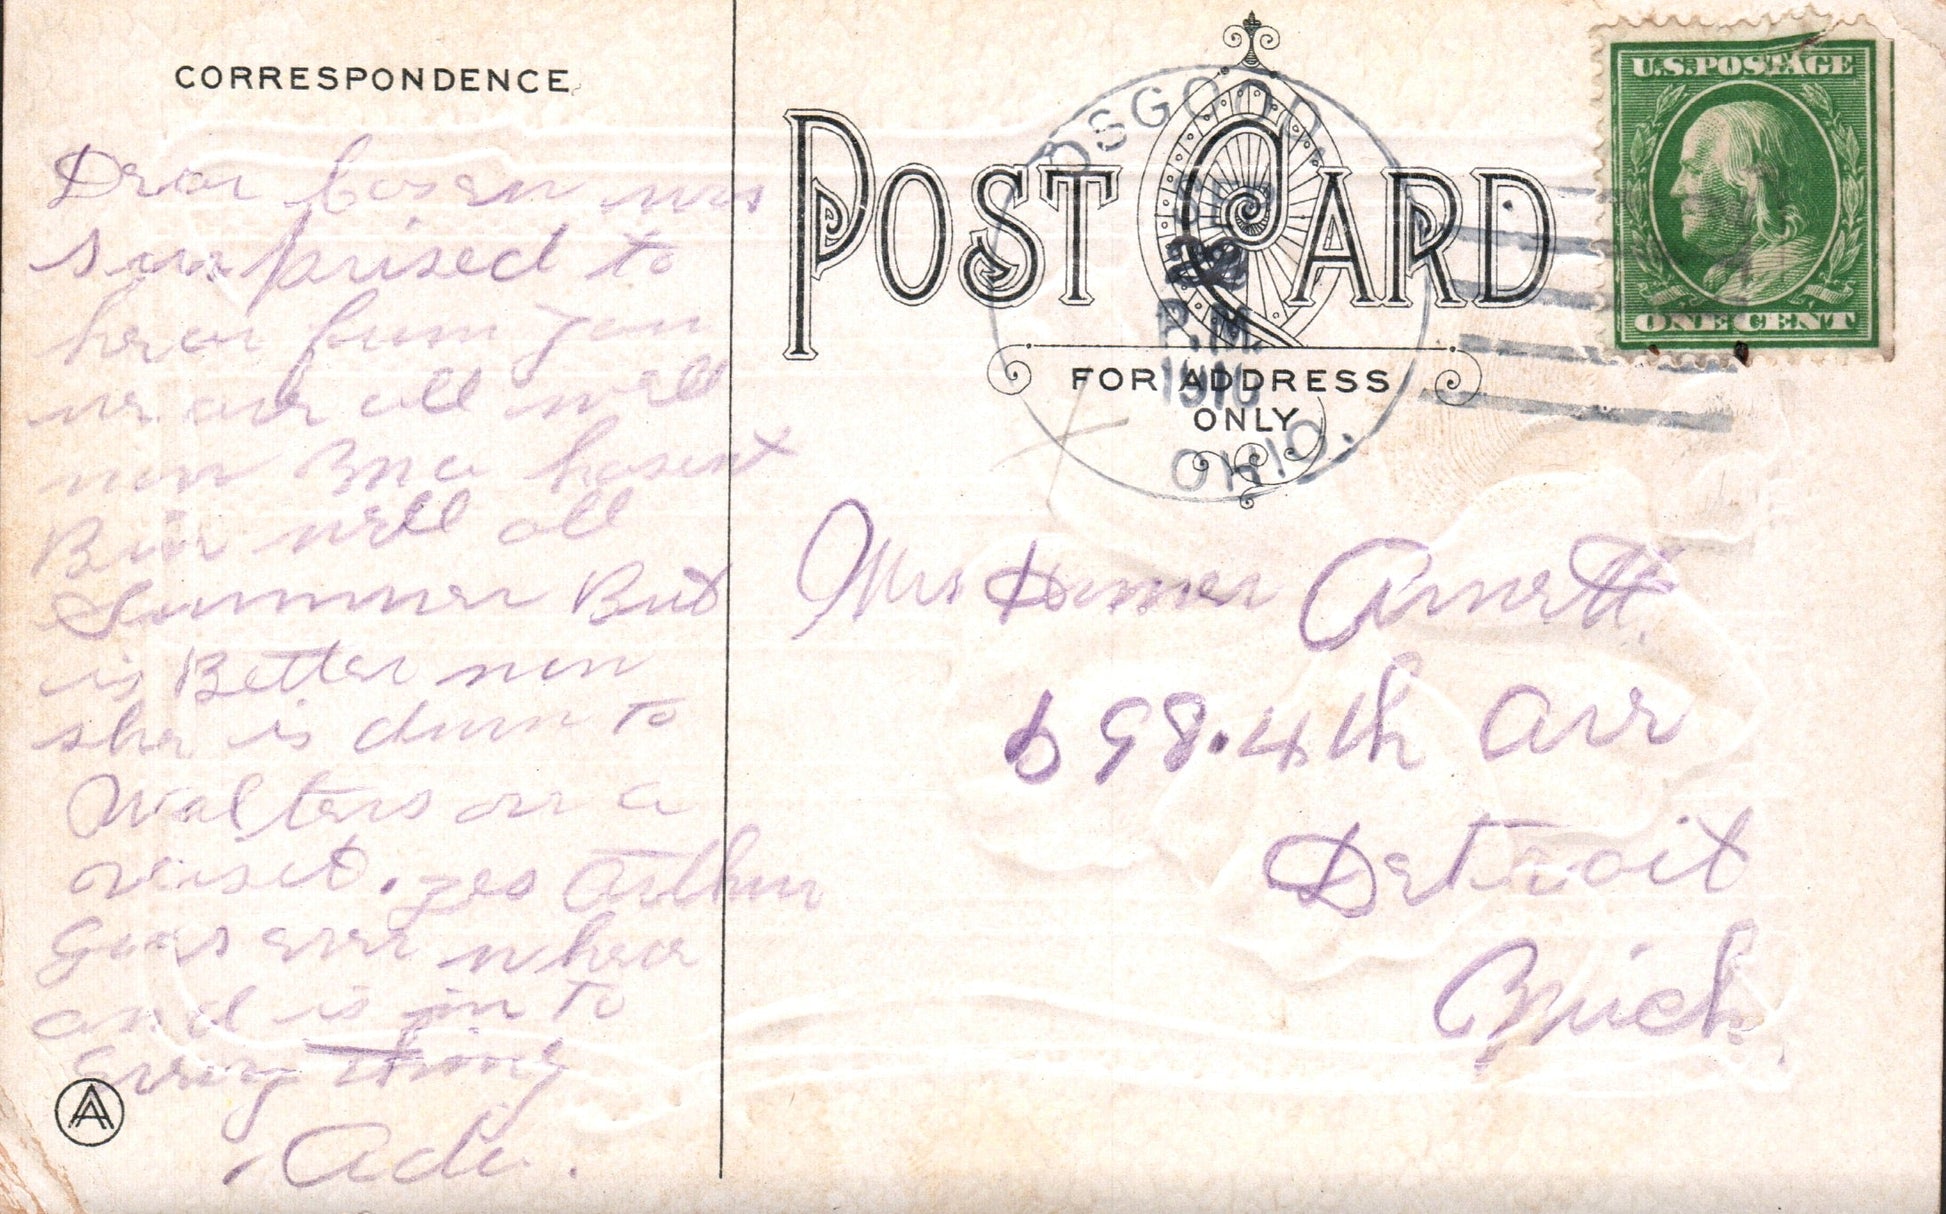 CORRESPONDENCE
Dear Cosen was
surprised to
hear frum you
we are all well
now Ma hasent
Bin well all
Summer But
is Better now
she is down to
Walters on a
viset. yes Arthur
Goes ever where
and is in to
Every thing
Ada.
A
POST CARD
FOR ADDRESS
ONLY
OSGOOD,
SEP
22
P.M.
1910
OHIO.
U.S. POSTAGE
ONE CENT
Mrs Homer Arnett.
698.4th Ave
Detroit
Mich.